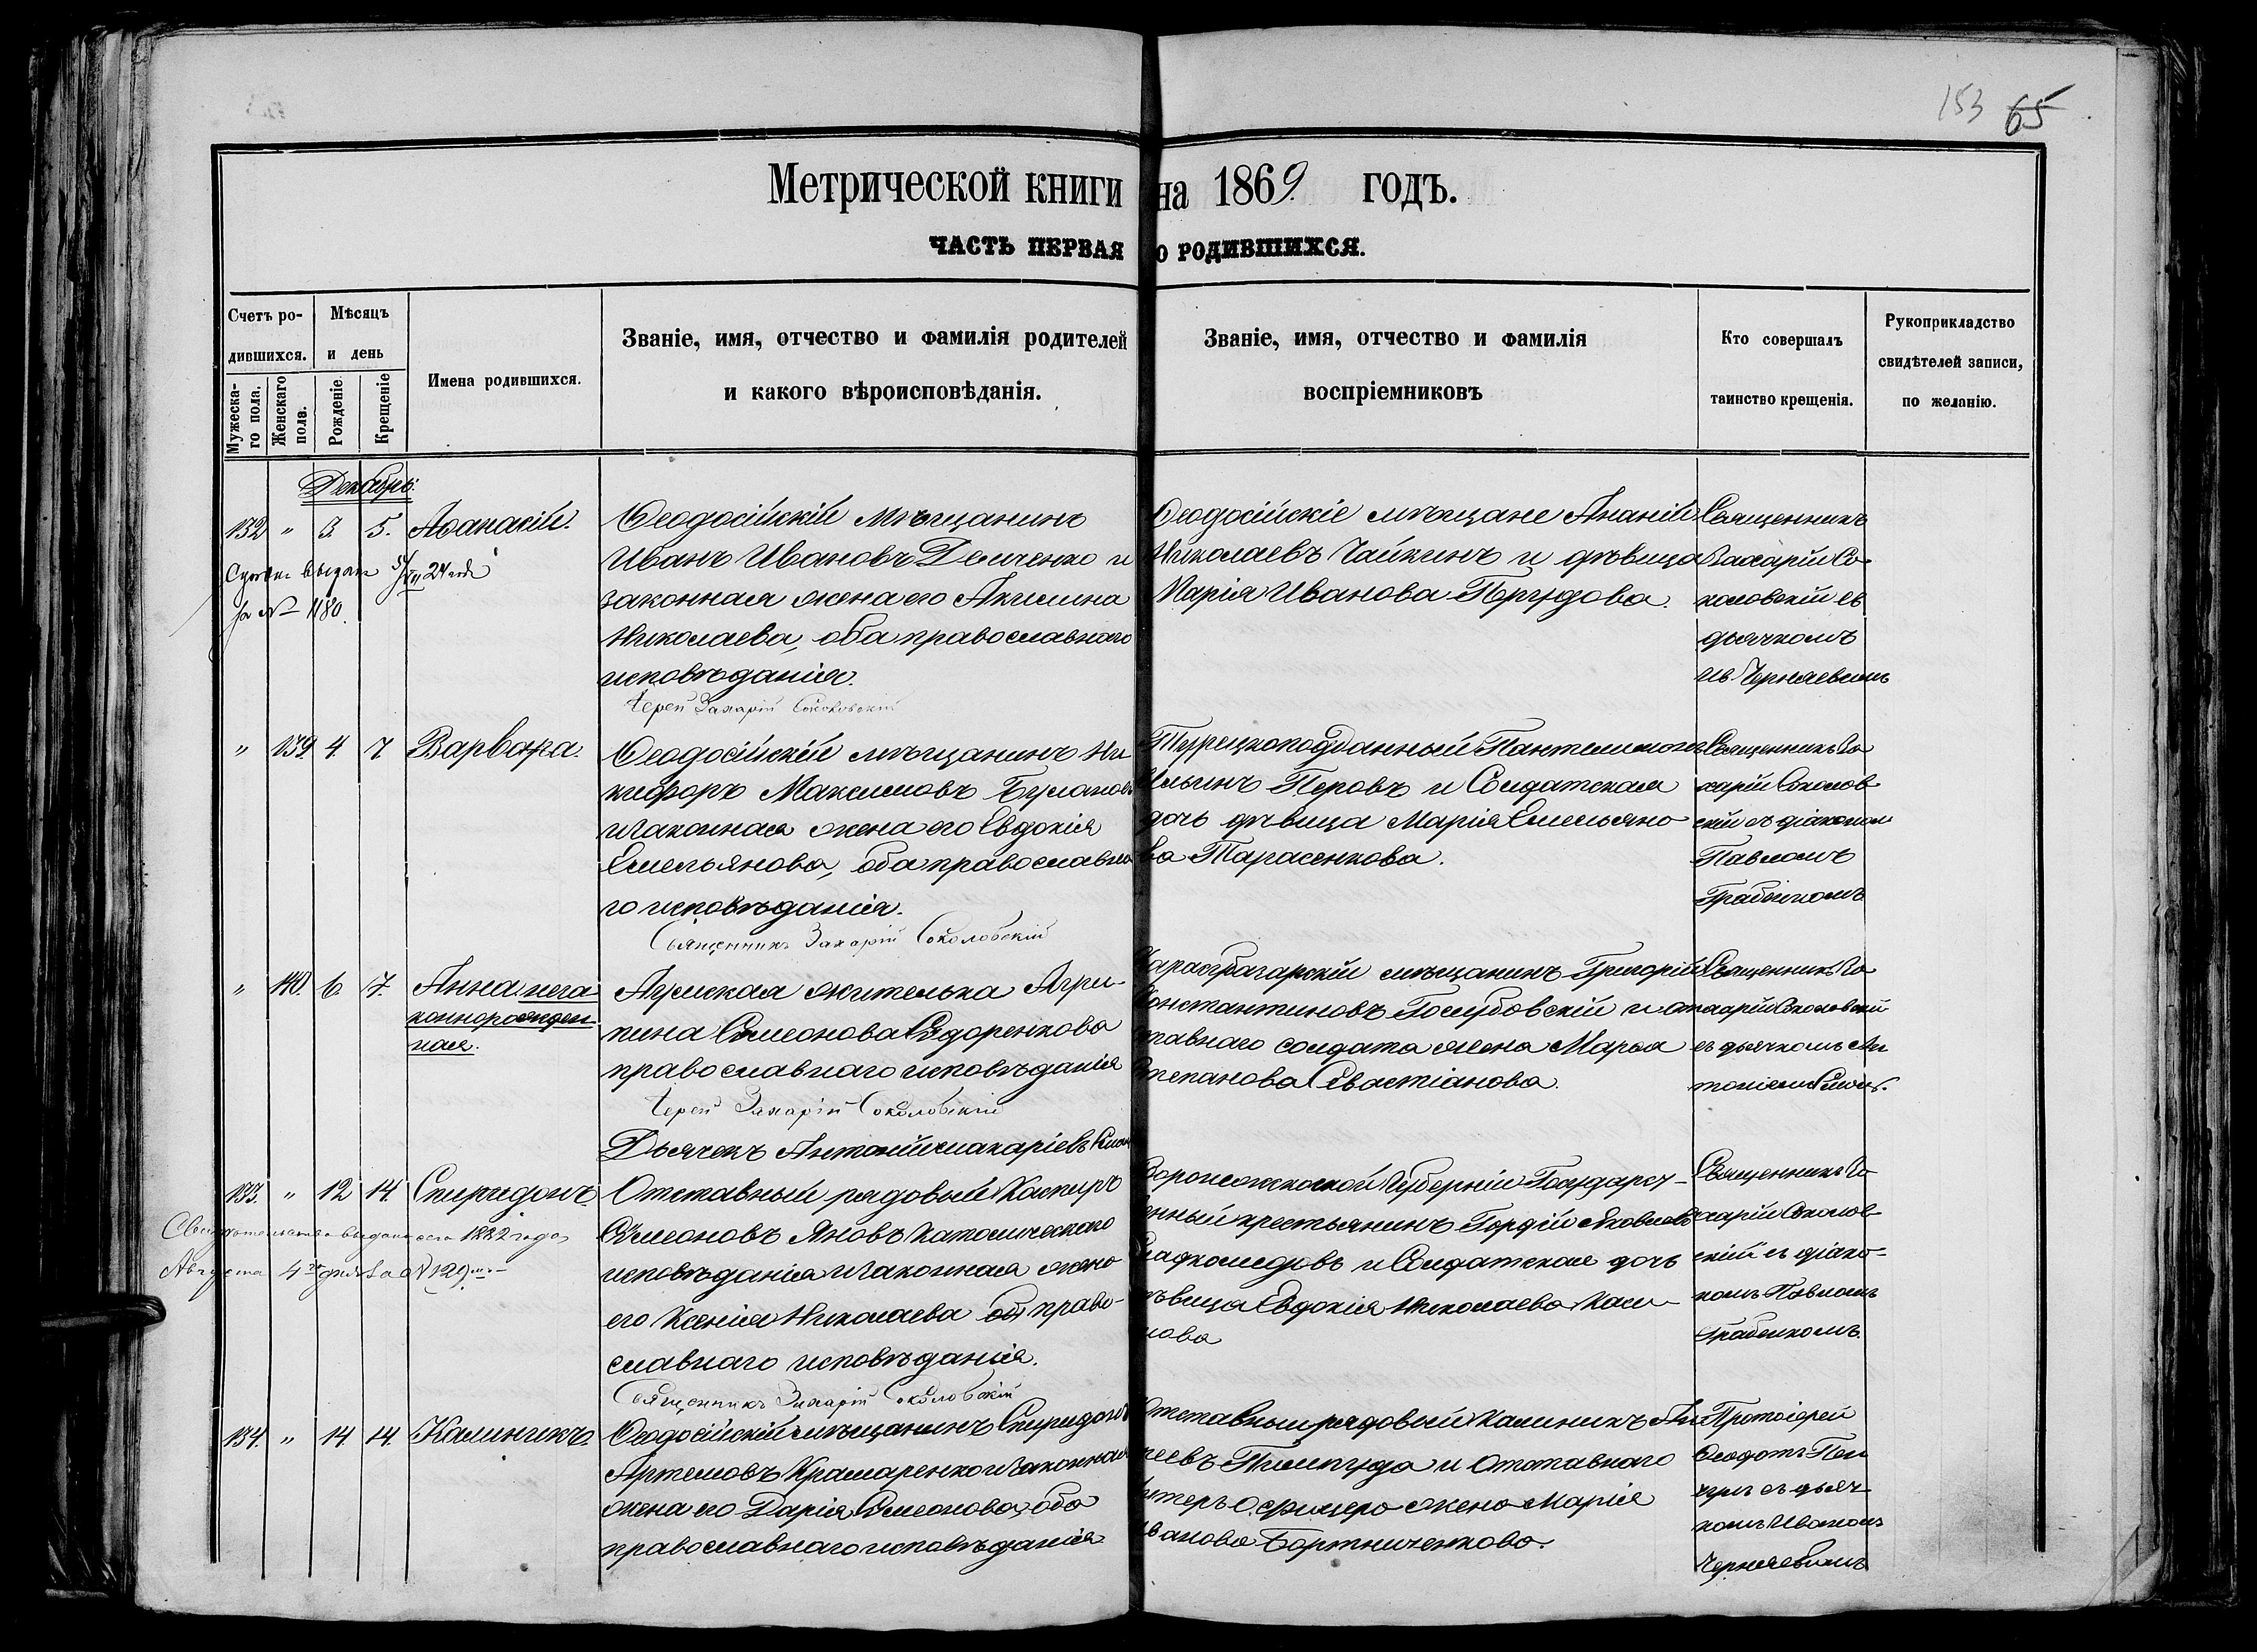 153 65
Метрической книги на 1869 годъ.
ЧАСТЬ ПЕРВАЯ О РОДИВШИХСЯ.
Счетъ ро-
дившихся.
Мужеска-
го пола.
Женскаго
пола.
Мѣсяцъ
и день
Рожденіе
Крещеніе
Имена родившихся.
Званіе, имя, отчество и фамилія родителей
и какого вѣроисповѣданія.
Званіе, имя, отчество и фамилія
воспріемниковъ
Кто совершалъ
таинство крещенія.
Рукоприкладство
свидѣтелей записи,
по желанію.
Декабрь.
132 " 3. 5. Аѳанасій.
выдана 24 года
за № 1180.
Ѳеодосійскій мѣщанинъ
Иванъ Ивановъ Демченко и
законная жена его Акилина
Николаева, оба православнаго
исповѣданія.
Іерей Захарій Соколовскій
Ѳеодосійскіе мѣщане Ананій
Николаевъ Чайкинъ и дѣвица
Марія Иванова
Священникъ
Захарій Со-
коловскій съ
дьячкомъ
Ив. Черняевымъ
" 139. 4 7 Варвара.
Ѳеодосійскій мѣщанинъ Ни-
кифоръ Максимовъ
и законная жена его Евдокія
Емельянова, оба православна
го исповѣданія.
Священникъ Захарій Соколовскій
Турецкоподданный Пантелимонъ
Ильинъ Перовъ и Солдатская
дочь дѣвица Марія Емельяно
ва Тарасенкова.
Священникъ За
харій Соколов
скій съ діакономъ
Павломъ
Грабенкомъ
" 140. 6. 7. Анна неза
коннорожден
ная.
жителька Агри-
пина Симеонова Сидоренкова
православнаго исповѣданія
Іерей Захарій Соколовскій
Дьячекъ Антоній Макаріевъ
Карасубазарскій мѣщанинъ Григорій
Константиновъ Голубовскій и от
ставнаго солдата жена Марья
Степанова Севастіанова.
Священникъ За
харій Соколовскій
съ дьячкомъ Ан
тоніемъ
133. " 12 14. Спиридонъ.
Свидѣтельство выдано 1882 года
Августа 4го дня за № 129
Отставный рядовый Каспиръ
Симеоновъ Яновъ католическаго
исповѣданія и законная жена
его Ксенія Николаева право-
славнаго исповѣданія.
Священникъ Захарій Соколовскій
Воронежской Губерніи Государст-
енный крестьянинъ Гордѣй Яковлевъ
и Солдатская дочь
дѣвица Евдокія Николаева
нова
Священникъ За
харій Соколов
скій съ діако-
номъ Павломъ
Грабенкомъ.
134. " 14. 14. Калинникъ.
Ѳеодосійскій мѣщанинъ Спиридонъ
Артемовъ Крамаренко и законная
жена его Дарія Симеонова, оба
православнаго исповѣданія
Отставный рядовый Калиникъ
и Отставнаго
Унтеръ Офицера жена Марія
Иванова Бортниченкова.
Протоіерей
Ѳеодотъ
съ дьяч
комъ Иваномъ
Черняевымъ